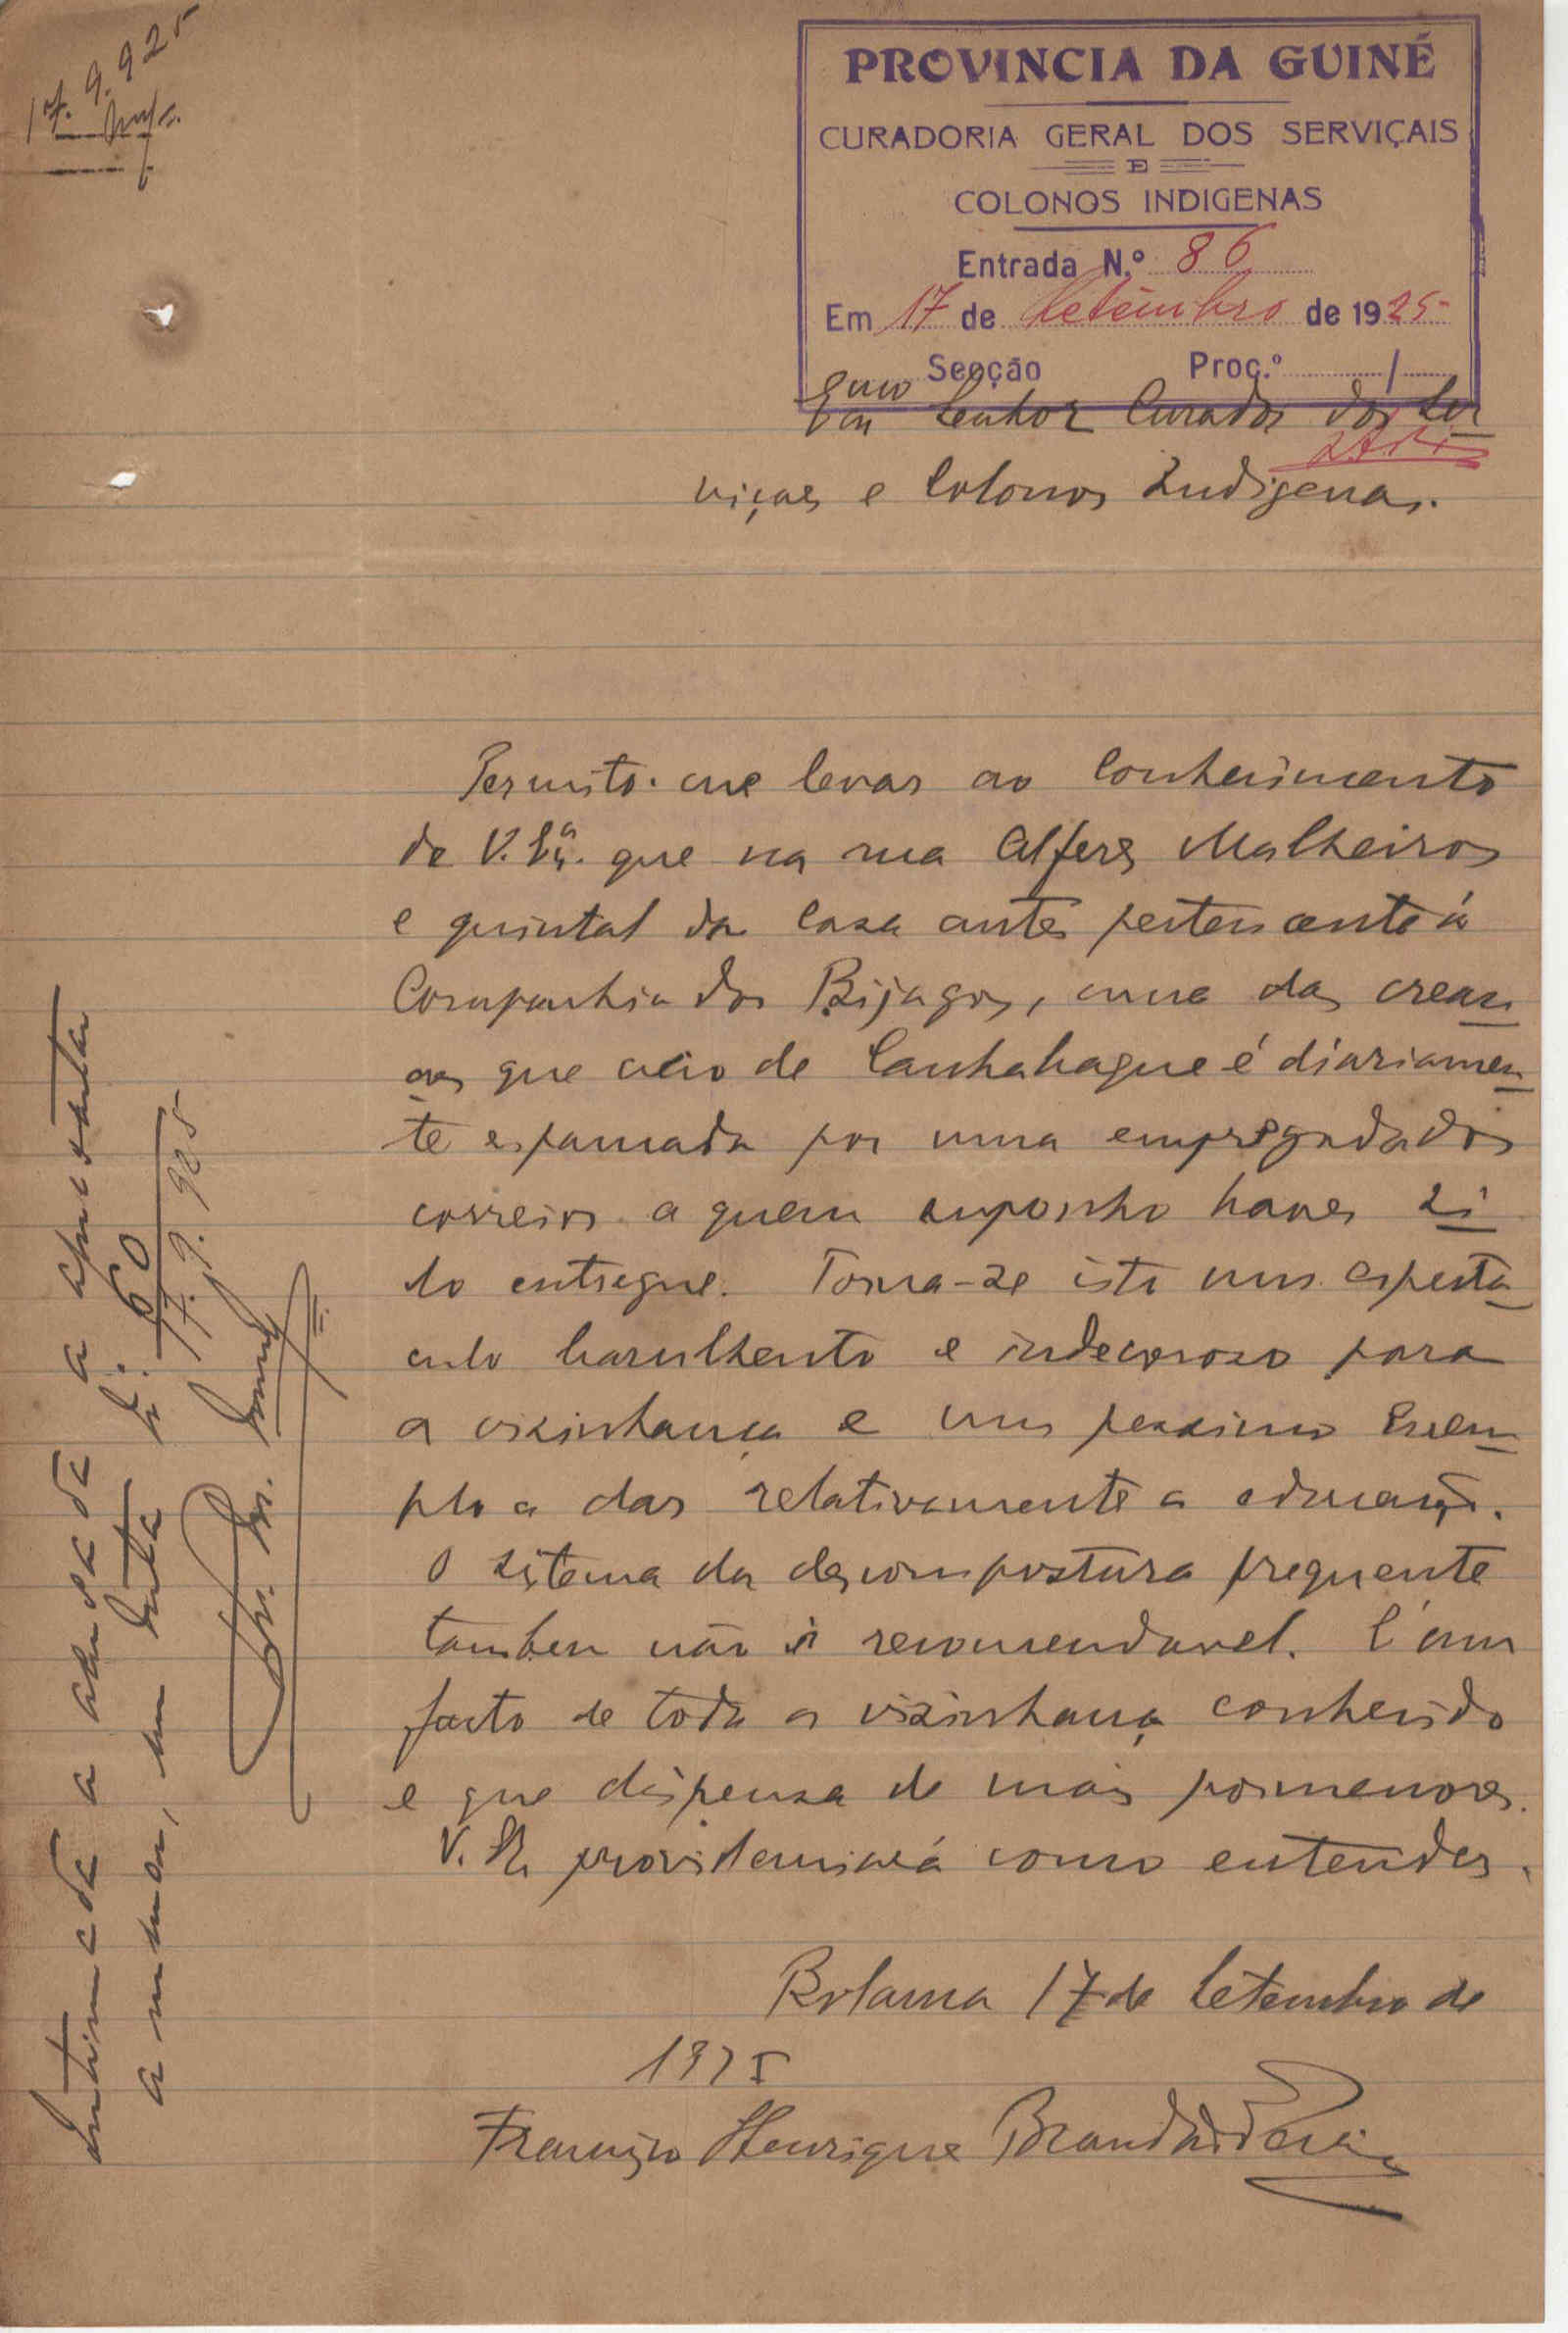 17.9.925
PROVINCIA DA GUINÉ
CURADORIA GERAL DOS SERVIÇAIS
E
COLONOS INDIGENAS
Entrada N.º 86
Em 17 de Setembro de 1925
Secção Proc.º /
Exmo Senhor Curador dos Ser
viçaes e Colonos Indigenas.
Permito-me levar ao conhecimento
de V. Exª. que na rua Alferes Malheiros
e quintal da casa antes pertencente á
Companhia dos Bijagos, uma das crean
ças que veio de Canhabaque é diáriamen
te espancada por uma empregada dos
correios a quem suponho haver si
do entregue. Torna-se isto um espectá
culo barulhento e indecoroso para
a visinhança e um pessimo exem
plo a dar relativamente a educação.
O sistema da descompostura frequente
tambem não é recomendavel. É um
facto de toda a visinhança conhecido
e que dispensa de mais pormenores.
V. Ex. providenciará como entender.
Bolama 17 de Setembro de
1925
Francisco Henrique Brandão
Intimada a acusada a apresentar
a menor, em nota nº 60
17.9.925